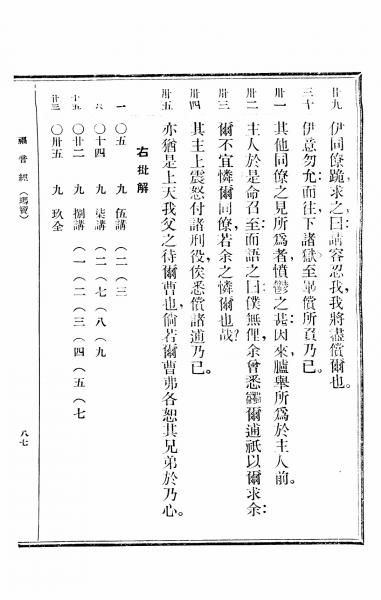 卅九 伊同僚跪求之曰請容忍我我將盡償爾也。
三十 伊意勿允而往下諸獄至畢償所負乃已。
卅一 其他同僚之見所為者憤鬱之甚因來臚舉所為於主人前。
卅二 主人於是命召至而語之曰僕無俚余曾悉蠲爾逋祇以爾求余
卅三 爾不宜憐爾同僚若余之憐爾也哉?
卅四 其主上震怒付諸刑役俟悉償諸逋乃已。
卅五 亦猶是上天我父之待爾曹也倘若爾曹弗各恕其兄弟於乃心。
右批解
一 〇五 九 伍講 (二) (三
六 〇十四 九 柒講 (二) (七) (八) (九
十五 〇廿二 九 捌講 (一) (二) (三) (四) (五) (七
廿三 〇卅五 九 玖全
福音經 (瑪竇)
八七